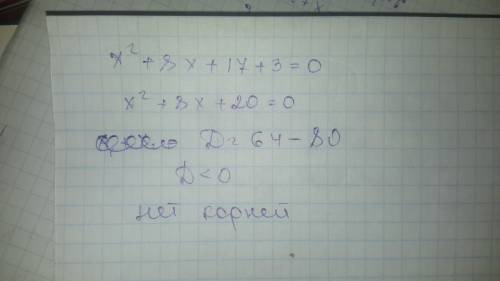 x² + 8x + 17 + 3 = 0
x² + 8x + 20 = 0
D = 64 - 80
D < 0
нет корней